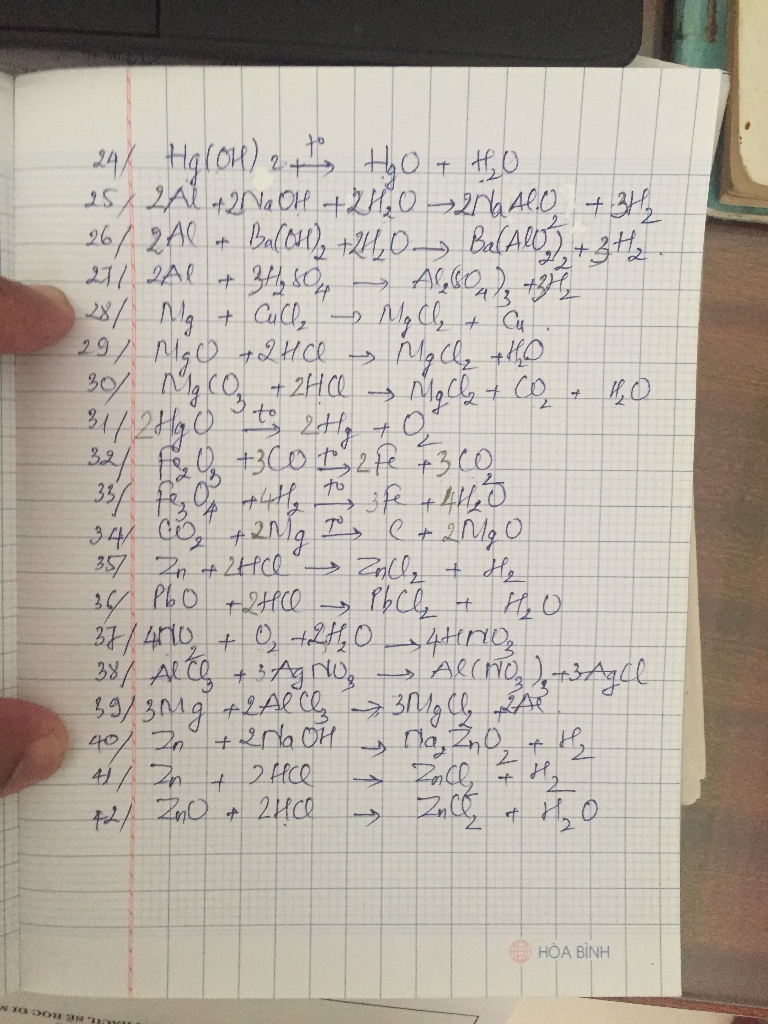 24/ Hg(OH)2 t°→ HgO + H2O
25/ 2Al + 2NaOH + 2H2O → 2NaAlO2 + 3H2
26/ 2Al + Ba(OH)2 + 2H2O → Ba(AlO2)2 + 3H2.
27/ 2Al + 3H2SO4 → Al2(SO4)3 + 3H2
28/ Mg + CuCl2 → MgCl2 + Cu.
29/ MgO + 2HCl → MgCl2 + H2O
30/ MgCO3 + 2HCl → MgCl2 + CO2 + H2O
31/ 2HgO t°→ 2Hg + O2
32/ Fe2O3 + 3CO t°→ 2Fe + 3CO2
33/ Fe3O4 + 4H2 t°→ 3Fe + 4H2O
34/ CO2 + 2Mg t°→ C + 2MgO
35/ Zn + 2HCl → ZnCl2 + H2
36/ PbO + 2HCl → PbCl2 + H2O
37/ 4NO2 + O2 + 2H2O → 4HNO3
38/ AlCl3 + 3AgNO3 → Al(NO3)3 + 3AgCl
39/ 3Mg + 2AlCl3 → 3MgCl2 + 2Al.
40/ Zn + 2NaOH → Na2ZnO2 + H2
41/ Zn + 2HCl → ZnCl2 + H2
42/ ZnO + 2HCl → ZnCl2 + H2O
HÒA BÌNH